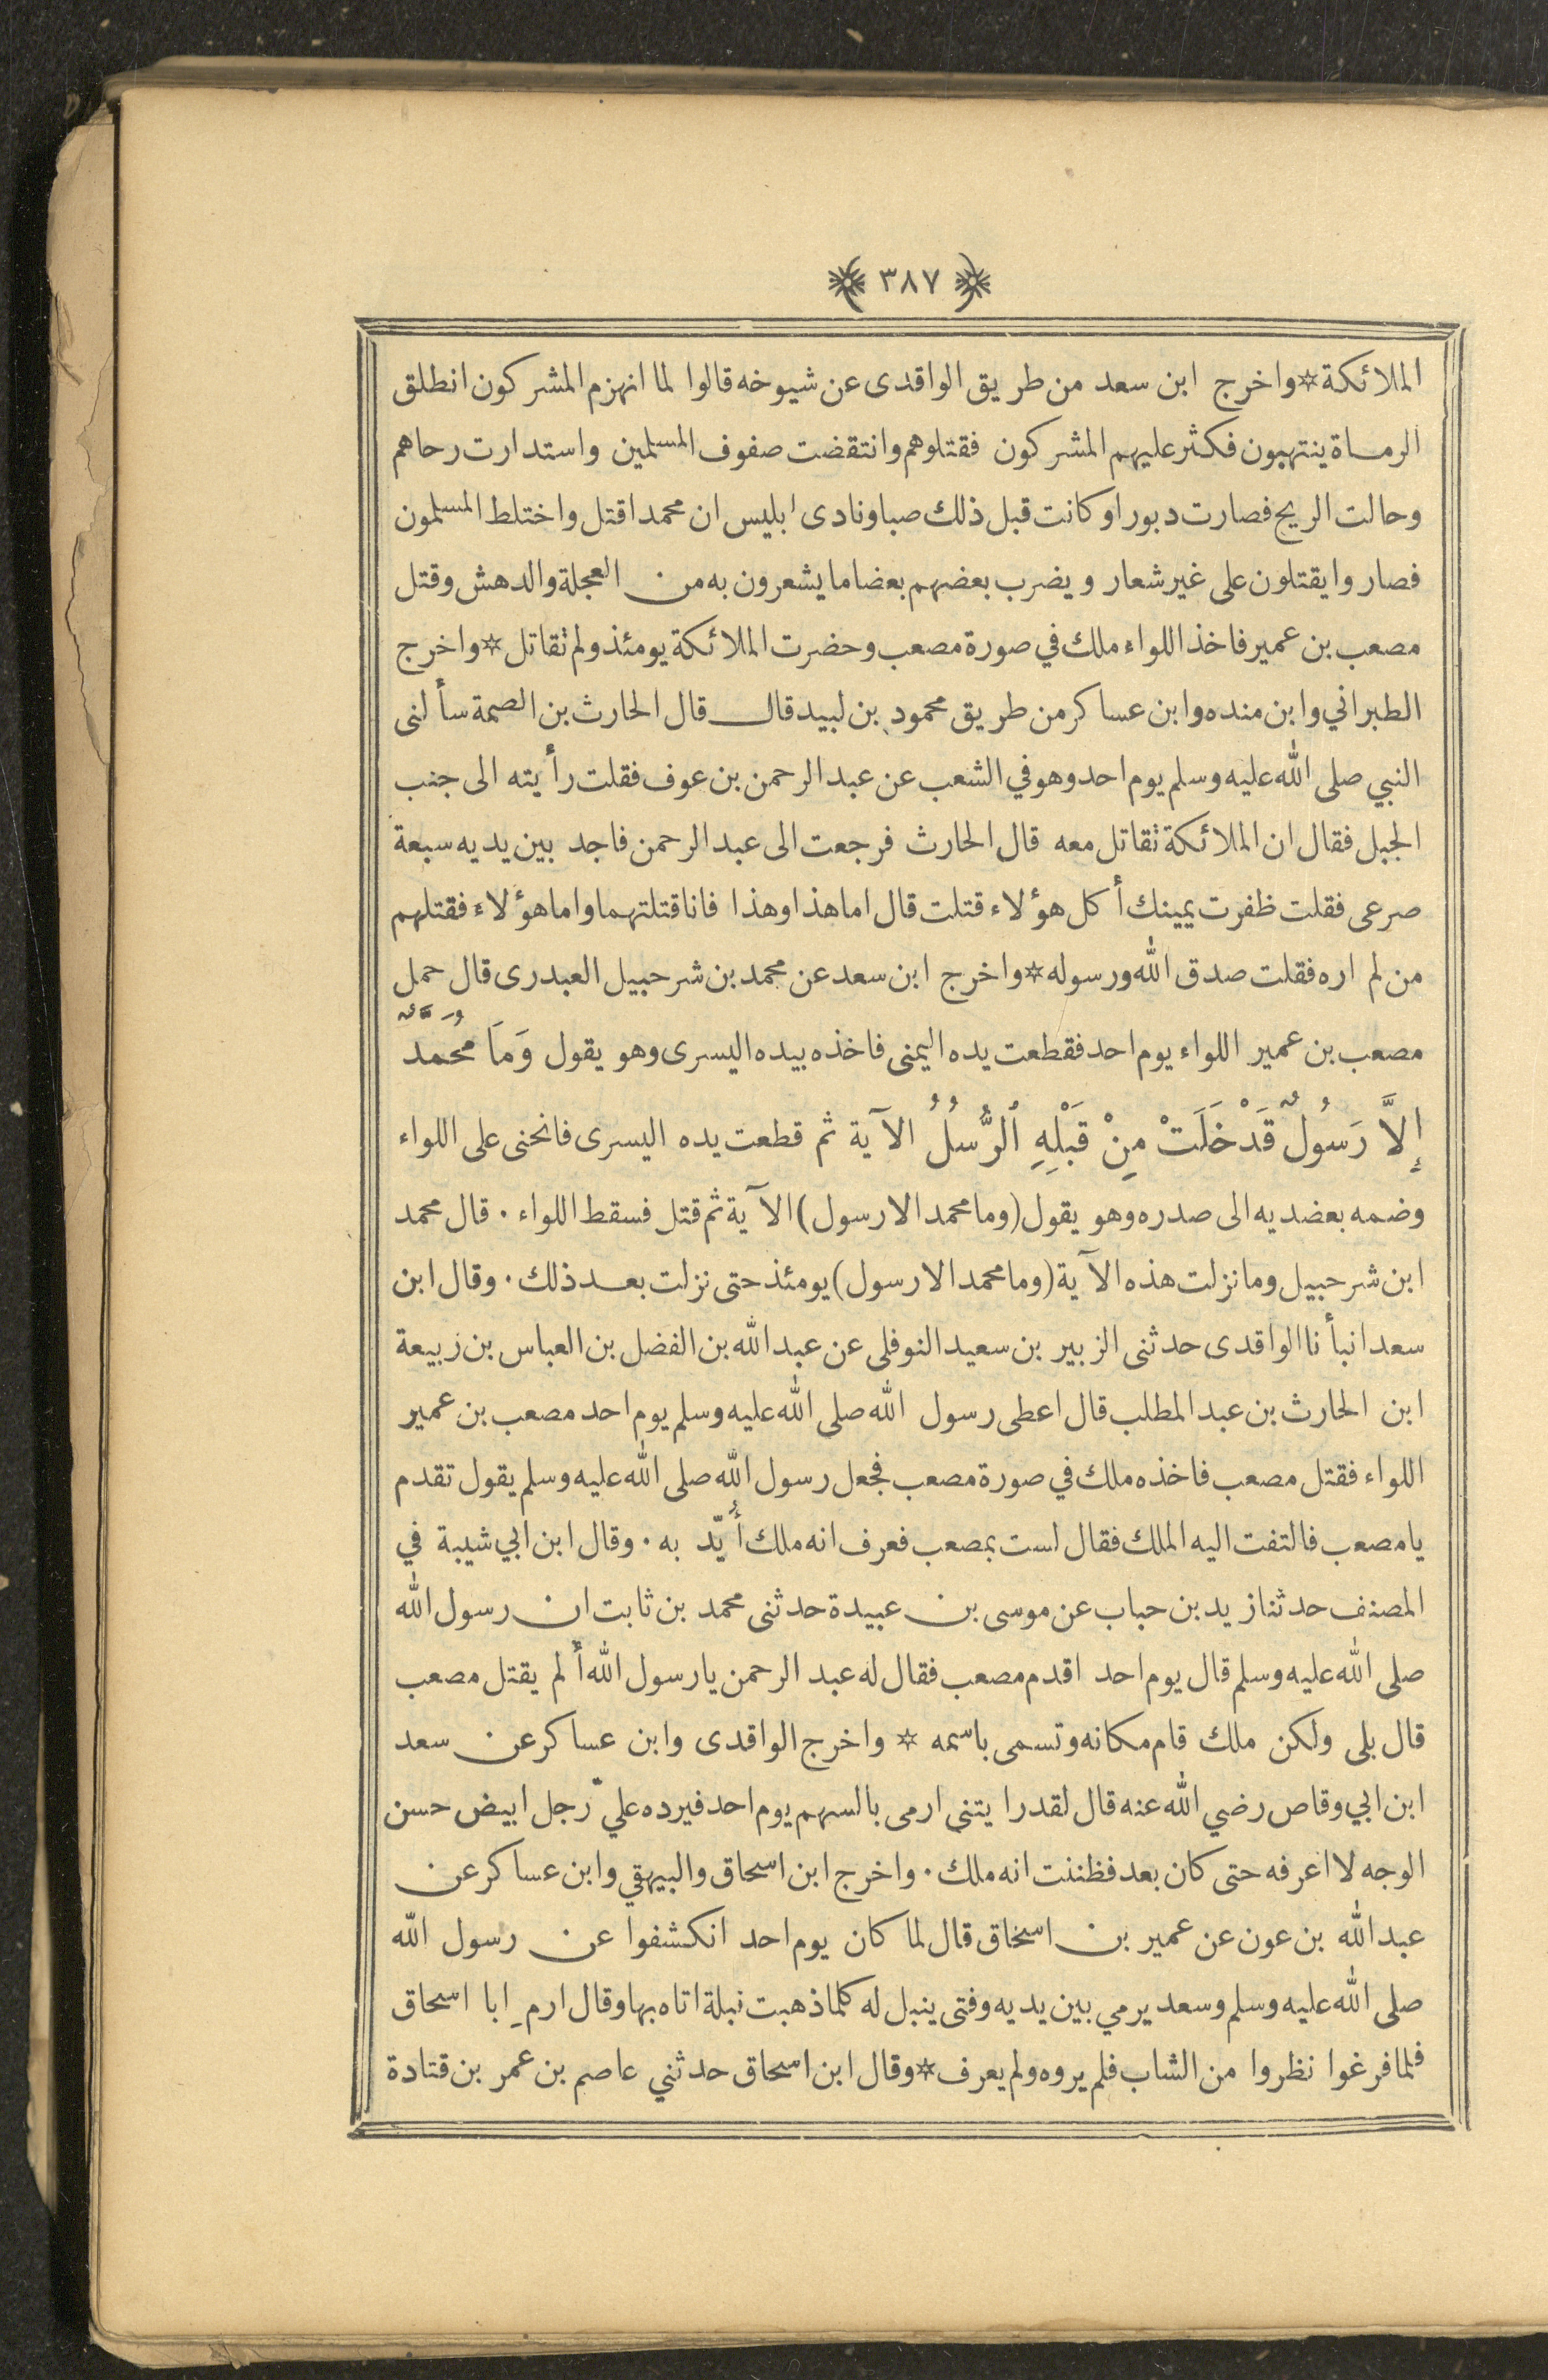 ﴿ ٣٨٧ ﴾
الملائكة ☆ واخرج ابن سعد من طريق الواقدى عن شيوخه قالوا لما انهزم المشركون انطلق
الرماة ينتهبون فكثر عليهم المشركون فقتلوهم وانتقضت صفوف المسلمين واستدارت رحاهم
وحالت الريح فصارت دبورا وكانت قبل ذلك صبا ونادى ابليس ان محمدا قتل واختلط المسلمون
فصاروا يقتلون على غير شعار ويضرب بعضهم بعضا ما يشعرون به من العجلة والدهش وقتل
مصعب بن عمير فاخذ اللواء ملك في صورة مصعب وحضرت الملائكة يومئذ ولم تقاتل ☆ واخرج
الطبراني وابن منده وابن عساكر من طريق محمود بن لبيد قال قال الحارث بن الصمة سألنى
النبي صلى الله عليه وسلم يوم احد وهو في الشعب عن عبد الرحمن بن عوف فقلت رأيته الى جنب
الجبل فقال ان الملائكة تقاتل معه قال الحارث فرجعت الى عبد الرحمن فاجد بين يديه سبعة
صرعى فقلت ظفرت يمينك أكل هؤلاء قتلت قال اما هذا وهذا فانا قتلتهما واما هؤلاء فقتلهم
من لم اره فقلت صدق الله ورسوله ☆ واخرج ابن سعد عن محمد بن شرحبيل العبدرى قال حمل
مصعب بن عمير اللواء يوم احد فقطعت يده اليمنى فاخذه بيده اليسرى وهو يقول وَمَا مُحَمَّدٌ
إِلَّا رَسُولٌ قَدْ خَلَتْ مِنْ قَبْلِهِ ٱلرُّسُلُ الآية ثم قطعت يده اليسرى فانحنى على اللواء
وضمه بعضديه الى صدره وهو يقول (وما محمد الا رسول) الآية ثم قتل فسقط اللواء . قال محمد
ابن شرحبيل وما نزلت هذه الآية (وما محمد الا رسول) يومئذ حتى نزلت بعد ذلك . وقال ابن
سعد انبأنا الواقدى حدثنى الزبير بن سعيد النوفلى عن عبد الله بن الفضل بن العباس بن ربيعة
ابن الحارث بن عبد المطلب قال اعطى رسول الله صلى الله عليه وسلم يوم احد مصعب بن عمير
اللواء فقتل مصعب فاخذه ملك في صورة مصعب فجعل رسول الله صلى الله عليه وسلم يقول تقدم
يا مصعب فالتفت اليه الملك فقال لست بمصعب فعرف انه ملك أُيّد به . وقال ابن ابي شيبة في
المصنف حدثنا زيد بن حباب عن موسى بن عبيدة حدثنى محمد بن ثابت ان رسول الله
صلى الله عليه وسلم قال يوم احد اقدم مصعب فقال له عبد الرحمن يا رسول الله ألم يقتل مصعب
قال بلى ولكن ملك قام مكانه وتسمى باسمه ☆ واخرج الواقدى وابن عساكر عن سعد
ابن ابي وقاص رضي الله عنه قال لقد رايتني ارمى بالسهم يوم احد فيرده عليّ رجل ابيض حسن
الوجه لا اعرفه حتى كان بعد فظننت انه ملك . واخرج ابن اسحاق والبيهقي وابن عساكر عن
عبد الله بن عون عن عمير بن اسحاق قال لما كان يوم احد انكشفوا عن رسول الله
صلى الله عليه وسلم وسعد يرمي بين يديه وفتى ينبل له كلما ذهبت نبلة اتاه بها وقال ارمِ ابا اسحاق
فلما فرغوا نظروا من الشاب فلم يروه ولم يعرف ☆ وقال ابن اسحاق حدثني عاصم بن عمر بن قتادة